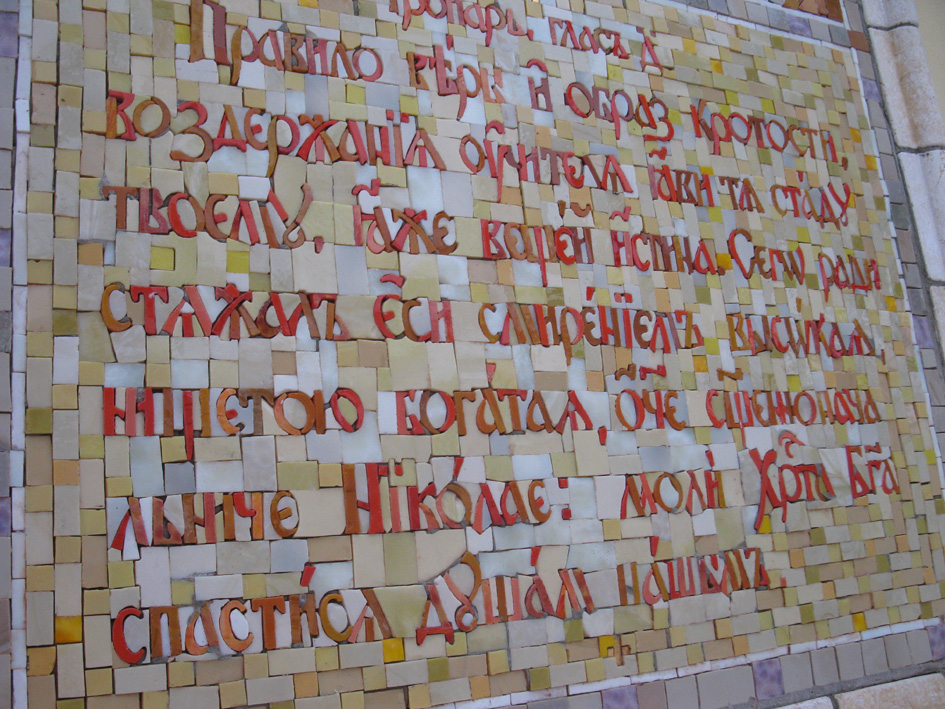 Тропарь, гласъ д҃
Правило вѣры и҆ образ кротости,
воздержанїя оу҆чителя ꙗ҆ви тѧ ста́ду
твоемꙋ, ꙗ҆́же веще́й и҆стина. Сегѡ ради
стѧжалъ є҆си смире́нїемъ высѡкая,
нищетою бога́тая, ѻ҆́тче сщ҃еннонача
льниче Нїко́лае: моли́ Хрⷭ҇та̀ Бг҃а,
спасти́сѧ дꙋша́мъ на́шымъ.